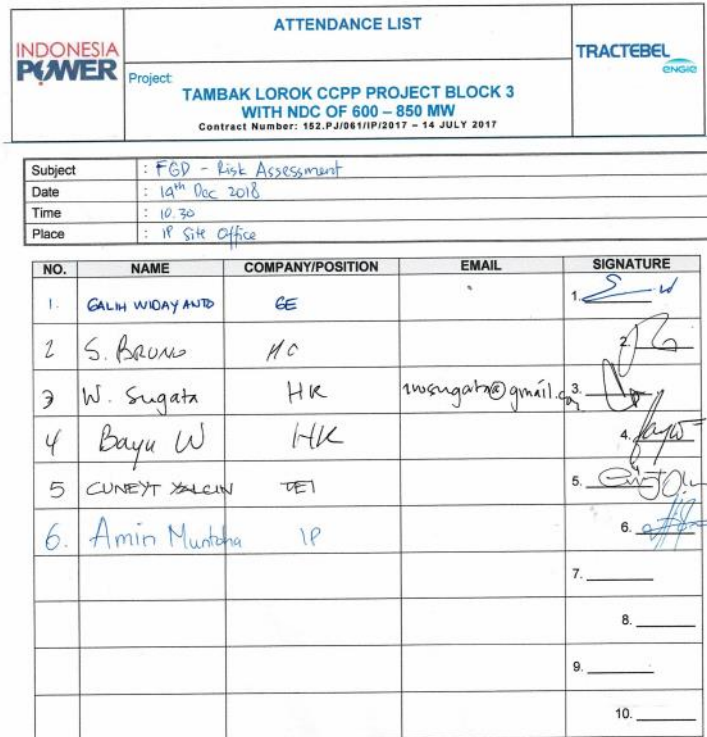 INDONESIA
POWER
ATTENDANCE LIST
Project:
TAMBAK LOROK CCPP PROJECT BLOCK 3
WITH NDC OF 600 – 850 MW
Contract Number: 152.PJ/061/IP/2017 – 14 JULY 2017
TRACTEBEL
ENGIE
Subject : FGD - Risk Assessment
Date : 19th Dec 2018
Time : 10.30
Place : IP Site Office
NO. NAME COMPANY/POSITION EMAIL SIGNATURE
1. GALIH WIDAYANTO GE 1.
2 S. BRUNO 2.
3 W. Sugata HK 3.
4 Bayu W HK 4.
5 CUNEYT YALCIN TEI 5.
6. Amin Muntoha IP 6.
7.
8.
9.
10.